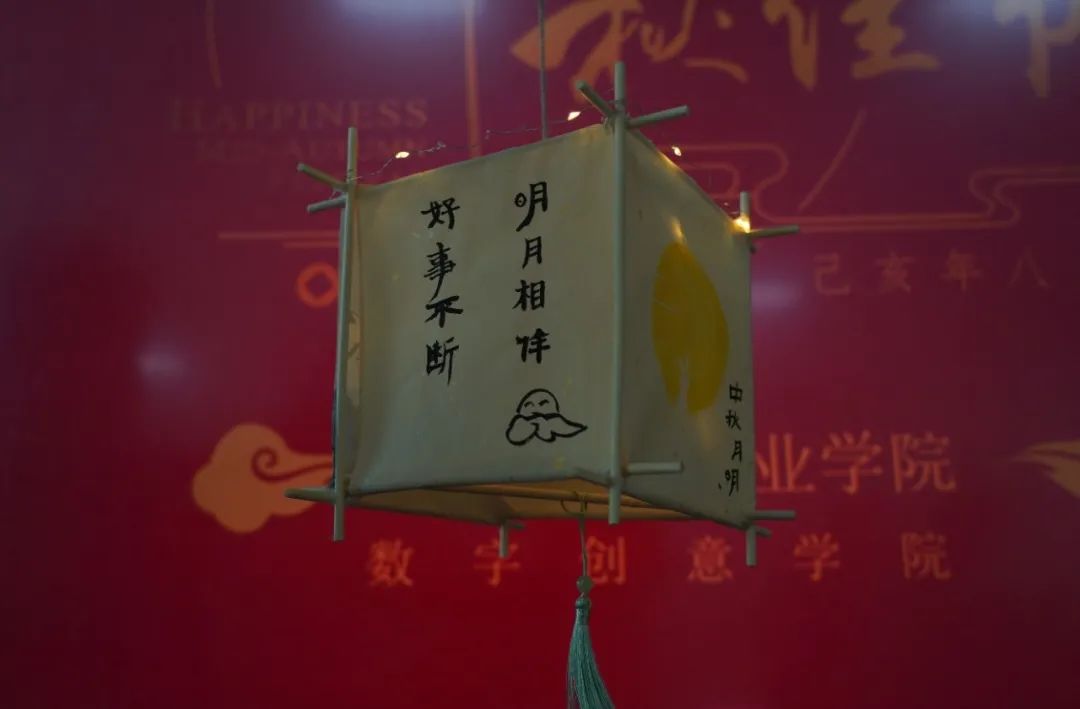 秋佳节
HAPPINESS
MID-AUTUMN
明月相伴
好事不断
己亥年八
中秋月明
业学院
数字创意学院